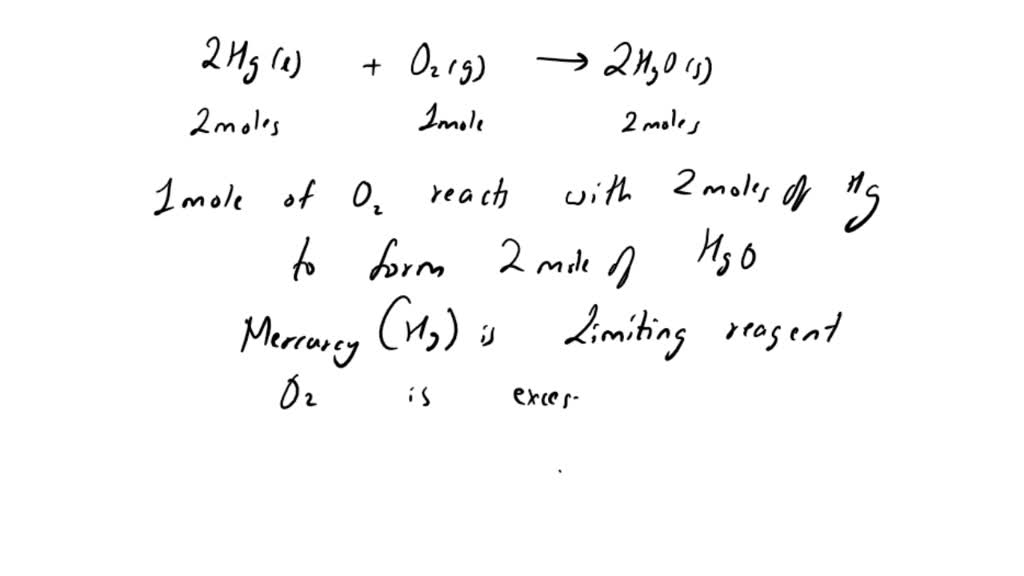 2Hg(l) + O₂(g) → 2HgO(s)
2moles 1mole 2moles
1mole of O₂ reach with 2moles of Hg
to form 2mole of HgO
Mercurcy (Hg) is Limiting reagent
O₂ is exces-